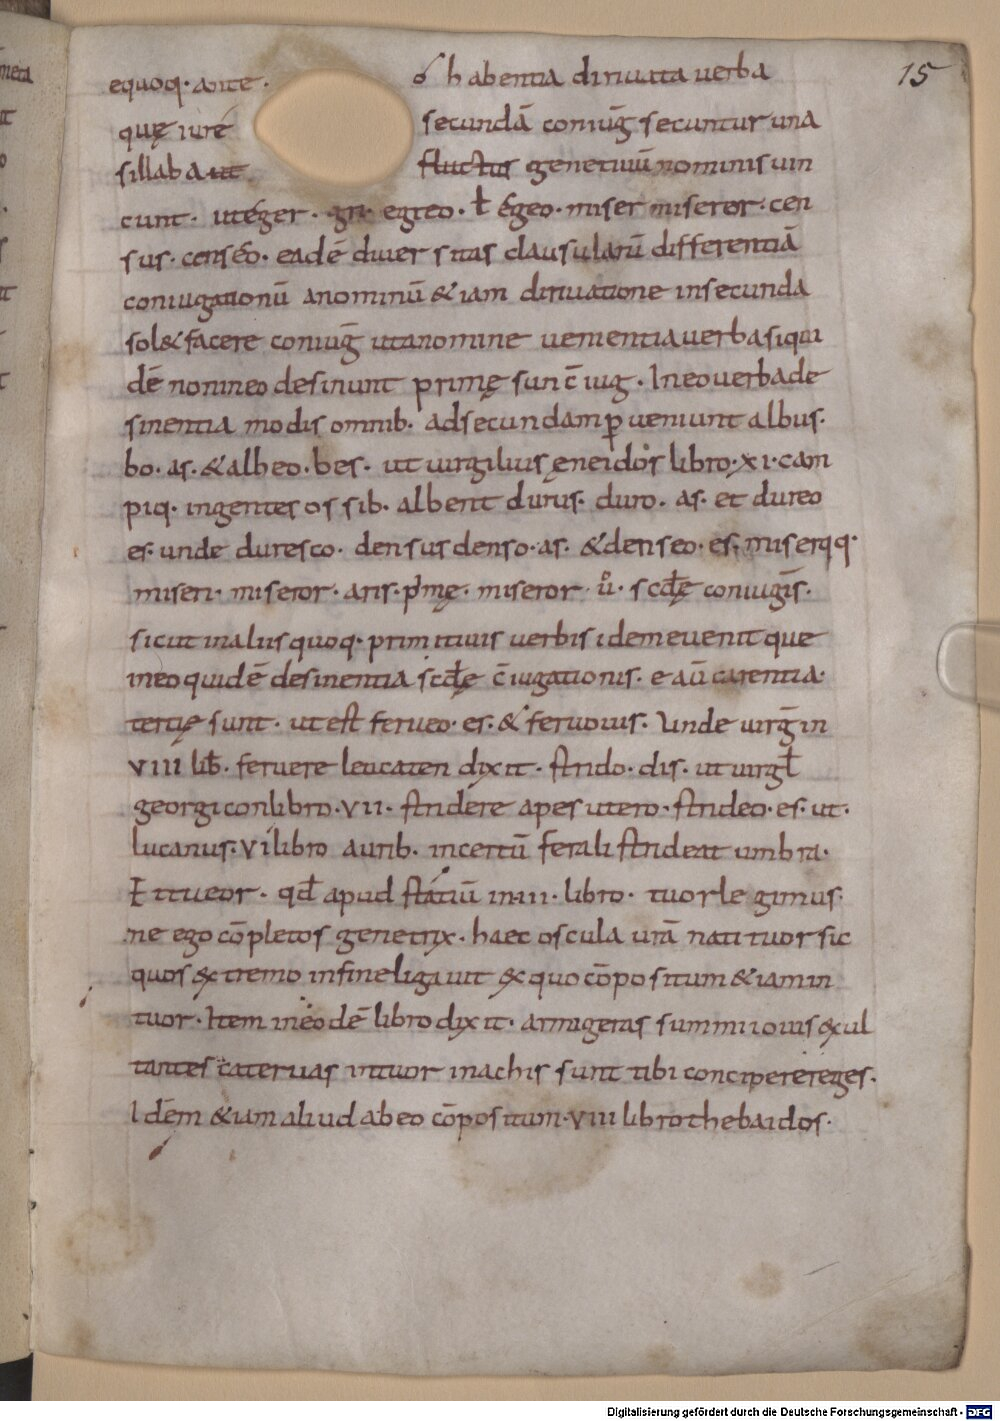 15
equoq· ante· ó habentia diriuata uerba
quę iure secundā coniug̅ secuntur una
sillaba ut fluctus genetiuū nominis uin
cunt· utéger· gri· egreo· ł égeo· miser miseror· cen
sus· censéo· eadē diuersitas clausularū differentiā
coniugationū anominū &iam diriuatione insecunda
sol& facere coniug̅ utanomine uenientia uerba siqui
dē non ineo desinunt primę sun c̄iug· In eo uerba de
sinentia modis omnib· adsecundam ꝑueniunt albus·
bo· as· & albeo· bes· ut uirgilius ęneidos libro· xi· cam
piq· ingentes ossib· albent durus· duro· as· et dureo
es· unde duresco· densus denso· as· & denseo· es· miserqq·
miseri· miseror· aris· p̍mę· miseror· ů· scd̄ę coniugīs·
sicut inaliis quoq· primitiuis uerbis idem euenit que
ineo quidē desinentia scd̄ę c̄iugationis· e aū carentia·
tertię sunt· ut est ferueo· es· & feruo uis· Unde uirg̅ in
viii lib̄· feruere leucaten dixit· strido· dis· ut uirgł
georgicon libro· vii· stridere apes utero· strideo· es· ut·
lucanus· vi libro aurib· incertū ferali strideat umbra·
Et tueor· qđ apud statiū in· iii· libro· tuor legimus·
ne ego cōpletos genetrix· haec oscula urā nati tuor sic
quos extremo in fine ligauit ex quo cōpositum &iam in
tuor· Item in eodē libro dixit· armigeras summi iouis exul
tantes cateruas intuor inachis sunt tibi concipere reges·
Idēm &iam aliud ab eo cōpositum· viii libro thebaidos·
Digitalisierung gefördert durch die Deutsche Forschungsgemeinschaft - DFG